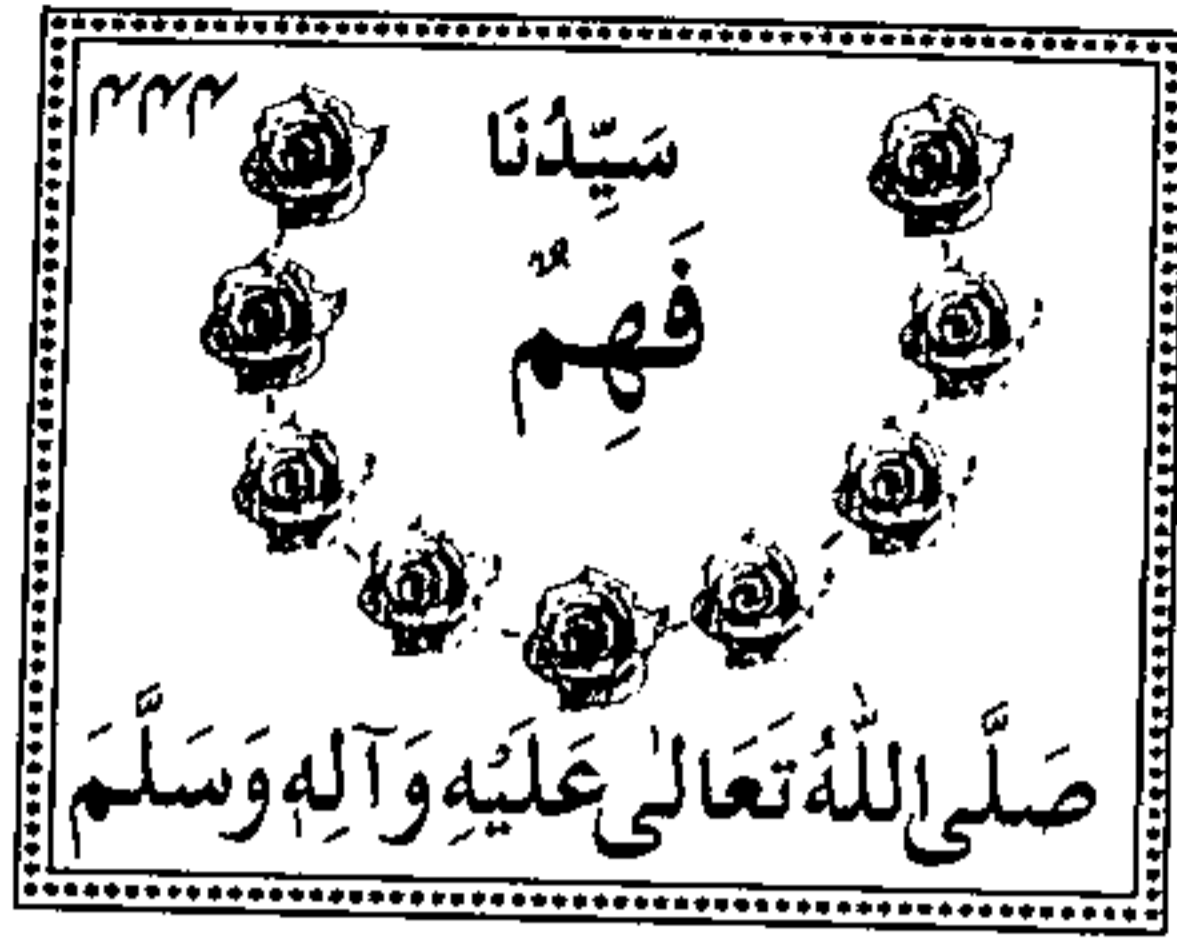 سَيِّدُنَا
فَهِمٌ
صَلَّى اللّٰهُ تَعَالٰى عَلَيْهِ وَآلِهٖ وَسَلَّمَ